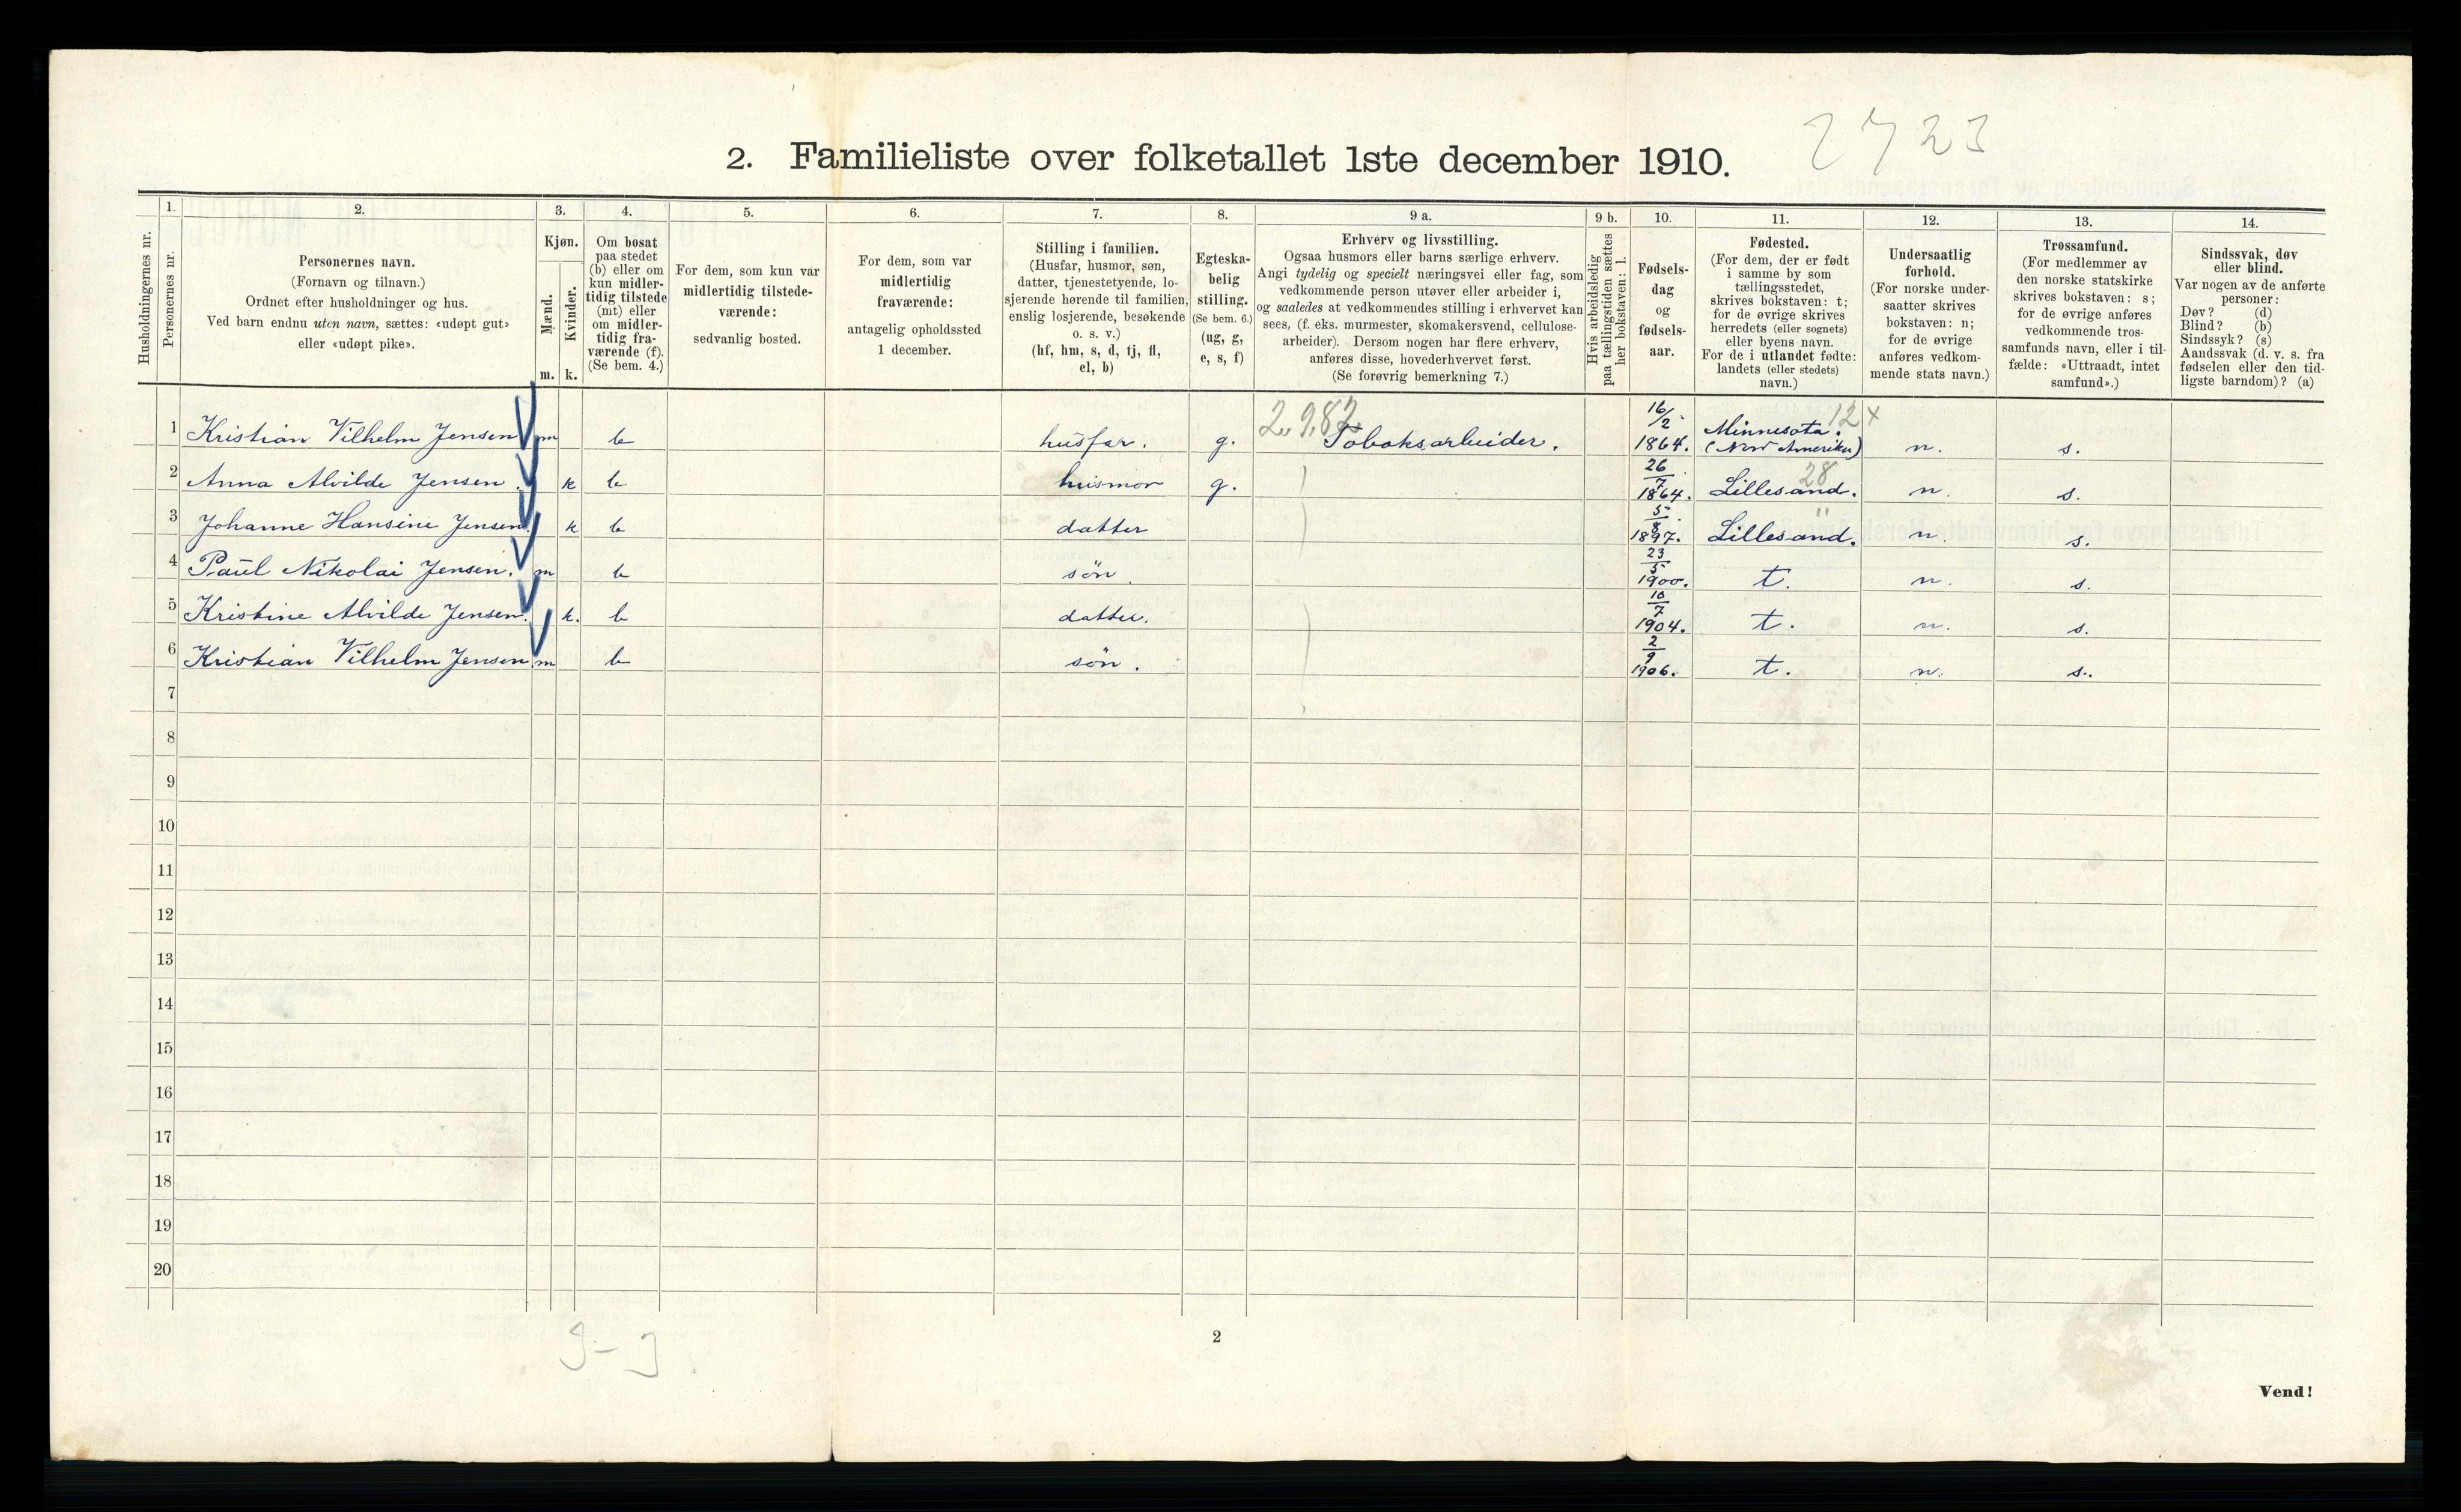 2723
2. Familieliste over folketallet 1ste december 1910.
Husholdningernes nr.
1. Personernes nr.
2.
Personernes navn.
(Fornavn og tilnavn.)
Ordnet efter husholdninger og hus.
Ved barn endnu uten navn, sættes: «udøpt gut»
eller «udøpt pike».
3.
Kjøn.
Mænd.
Kvinder.
m. k.
4.
Om bosat
paa stedet
(b) eller om
kun midler-
tidig tilstede
(mt) eller
om midler-
tidig fra-
værende (f).
(Se bem. 4.)
5.
For dem, som kun var
midlertidig tilstede-
værende:
sedvanlig bosted.
6.
For dem, som var
midlertidig
fraværende:
antagelig opholdssted
1 december.
7.
Stilling i familien.
(Husfar, husmor, søn,
datter, tjenestetyende, lo-
sjerende hørende til familien,
enslig losjerende, besøkende
o. s. v.)
(hf, hm, s, d, tj, fl,
el, b)
8.
Egteska-
belig
stilling.
(Se bem. 6.)
(ug, g,
e, s, f)
9 a.
Erhverv og livsstilling.
Ogsaa husmors eller barns særlige erhverv.
Angi tydelig og specielt næringsvei eller fag, som
vedkommende person utøver eller arbeider i,
og saaledes at vedkommendes stilling i erhvervet kan
sees, (f. eks. murmester, skomakersvend, cellulose-
arbeider). Dersom nogen har flere erhverv,
anføres disse, hovederhvervet først.
(Se forøvrig bemerkning 7.)
9 b.
Hvis arbeidsledig
paa tællingstiden sættes
her bokstaven: l.
10.
Fødsels-
dag
og
fødsels-
aar.
11.
Fødested.
(For dem, der er født
i samme by som
tællingsstedet,
skrives bokstaven: t;
for de øvrige skrives
herredets (eller sognets)
eller byens navn.
For de i utlandet fødte:
landets (eller stedets)
navn.)
12.
Undersaatlig
forhold.
(For norske under-
saatter skrives
bokstaven: n;
for de øvrige
anføres vedkom-
mende stats navn.)
13.
Trossamfund.
(For medlemmer av
den norske statskirke
skrives bokstaven: s;
for de øvrige anføres
vedkommende tros-
samfunds navn, eller i til-
fælde: «Uttraadt, intet
samfund».)
14.
Sindssvak, døv
eller blind.
Var nogen av de anførte
personer:
Døv? (d)
Blind? (b)
Sindssyk? (s)
Aandssvak (d. v. s. fra
fødselen eller den tid-
ligste barndom)? (a)
1 Kristian Vilhelm Jensen m b husfar. g. Tobaksarbeider. 16/2 1864. Minnesota. (Nord Amerika) n. s.
2 Anna Alvilde Jensen. k b husmor g. 26/7 1864. Lillesand. 28 n. s.
3 Johanne Hansine Jensen. k b datter 5/8 1897. Lillesand. " n. s.
4 Paul Nikolai Jensen. m b søn. 23/5 1900. t. n. s.
5 Kristine Alvilde Jensen. k. b datter. 10/7 1904. t. n. s.
6 Kristian Vilhelm Jensen m b søn. 2/9 1906. t. n. s.
7
8
9
10
11
12
13
14
15
16
17
18
19
20
2
Vend!